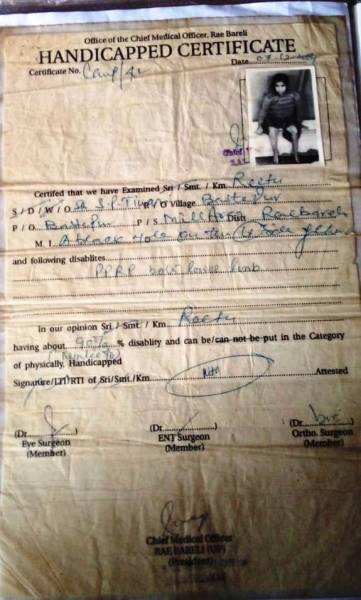 Office of the Chief Medical Officer, Rae Bareli
HANDICAPPED CERTIFICATE
Certificate No. Camp/41 Date
Certifed that we have Examined Sri / Smt. / Km. Reetu
S / D / W / O S.P. R/O Village
P / O P / S Distt Raebareli
M. I. A black mole on the
and following disablites
PPRP both lower limb
In our opinion Sri / Smt. / Km. Reetu
having about 90% % disablity and can be/can not be put in the Category
of physically, Handicapped
Signature/LTI/RTI of Sri/Smt./Km. Attested
(Dr. ) (Dr. ) (Dr. )
Eye Surgeon ENT Surgeon Ortho. Surgeon
(Member) (Member) (Member)
Chief Medical Officer
RAE BARELI (UP)
(President)